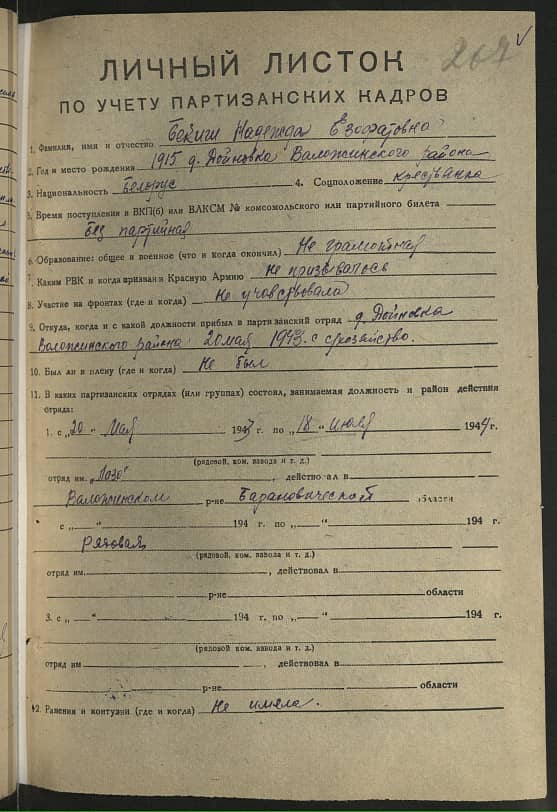 267 V
ЛИЧНЫЙ ЛИСТОК
ПО УЧЕТУ ПАРТИЗАНСКИХ КАДРОВ
1. Фамилия, имя и отчество Бекиш Надежда Езофатовна
2. Год и место рождения 1915 д. Дойновка Валожинского района
3. Национальность белорус 4. Соцположение крестьянка
5. Время поступления в ВКП(б) или ВЛКСМ № комсомольского или партийного билета
Без партийная
6. Образование: общее и военное (что и когда окончил) Не грамотная
7. Каким РВК и когда призван в Красную Армию не призывалось
8. Участие на фронтах (где и когда) Не учовствовала
9. Откуда, когда и с какой должности прибыл в партизанский отряд д. Дойновка
Валожинского района 20 мая 1943 с
10. Был ли в плену (где и когда) Не был
11. В каких партизанских отрядах (или группах) состоял, занимаемая должность и район действия
отряда:
1. с „20" Мая 1943 г. по „18" июля 1944 г.
(рядовой, ком. взвода и т. д.)
отряд им. , действовал в
Валожинском р-не Барановической области
с „ " 194 г. по „ " 194 г.
Рядовая
(рядовой, ком. взвода и т. д.)
отряд им. , действовал в
р-не области
3. с „ " 194 г. по „ " 194 г.
(рядовой, ком. взвода и т. д.)
отряд им. , действовал в
р-не области
12. Ранения и контузии (где и когда) Не имела.